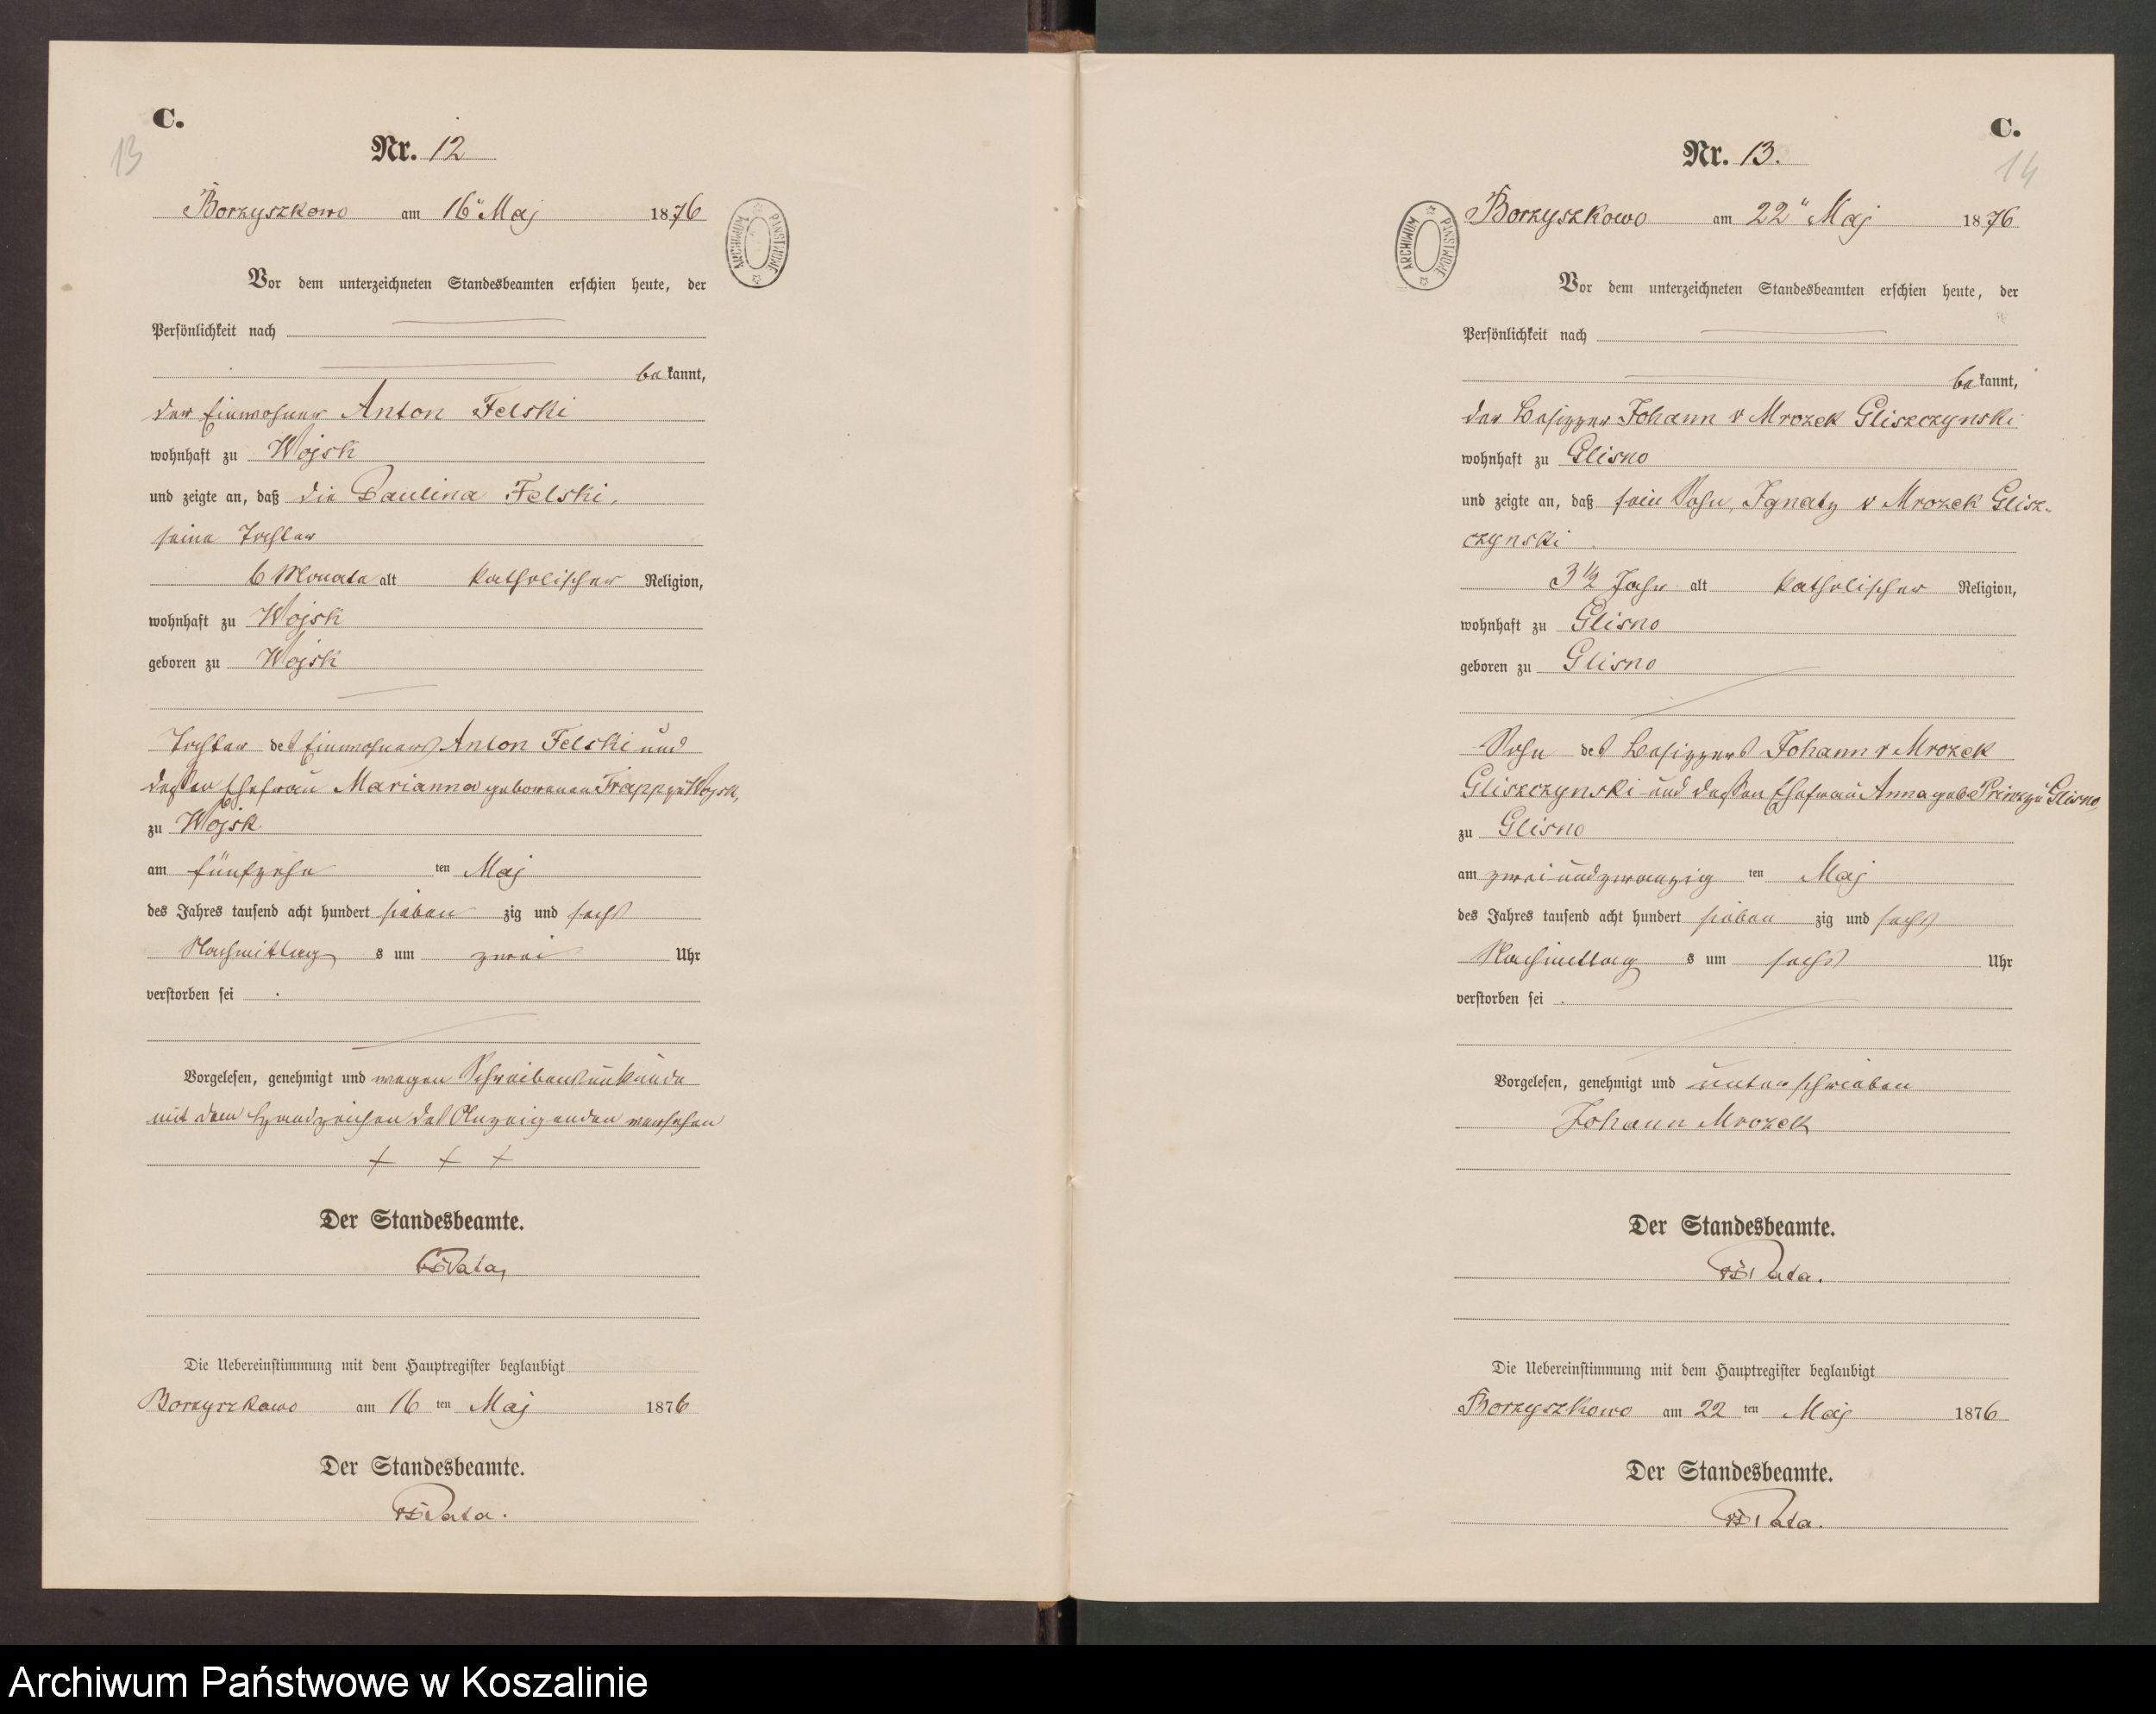 C.
13
Nr. 12
Borzyszkowo am 16" Maj 1876
ARCHIWUM PAŃSTWOWE
Vor dem unterzeichneten Standesbeamten erschien heute, der
Persönlichkeit nach
bekannt,
der Einwohner Anton Felski
wohnhaft zu Wojsk
und zeigte an, daß die Paulina Felski,
seine Tochter
6 Monate alt katholischer Religion,
wohnhaft zu Wojsk
geboren zu Wojsk
Tochter des Einwohners Anton Felski und
dessen Ehefrau Marianna geborenen Trapp zu Wojsk,
zu Wojsk
am fünfzehn ten Maj
des Jahres tausend acht hundert sieben zig und sechs
Nachmittag s um zwei Uhr
verstorben sei
Vorgelesen, genehmigt und wegen Schreibensunkunde
mit dem Handzeichen des Anzeigenden versehen
+ + +
Der Standesbeamte.
Pata
Die Uebereinstimmung mit dem Hauptregister beglaubigt
Borzyszkowo am 16 ten Maj 1876
Der Standesbeamte.
Pata.
C.
14
Nr. 13.
Borzyszkowo am 22" Maj 1876
ARCHIWUM PAŃSTWOWE
Vor dem unterzeichneten Standesbeamten erschien heute, der
Persönlichkeit nach
bekannt,
der Besitzer Johann v Mrozek Gliszczynski
wohnhaft zu Glisno
und zeigte an, daß sein Sohn, Ignatz v Mrozek Glisz-
czynski
3 1/2 Jahr alt katholischer Religion,
wohnhaft zu Glisno
geboren zu Glisno
Sohn des Besitzers Johann v Mrozek
Gliszczynski und dessen Ehefrau Anna geb zu Glisno,
zu Glisno
am zweiundzwanzig ten Maj
des Jahres tausend acht hundert sieben zig und sechs
Nachmittag s um sechs Uhr
verstorben sei
Vorgelesen, genehmigt und unterschrieben
Johann Mrozek
Der Standesbeamte.
Pata.
Die Uebereinstimmung mit dem Hauptregister beglaubigt
Borzyszkowo am 22 ten Maj 1876
Der Standesbeamte.
Pata.
Archiwum Państwowe w Koszalinie